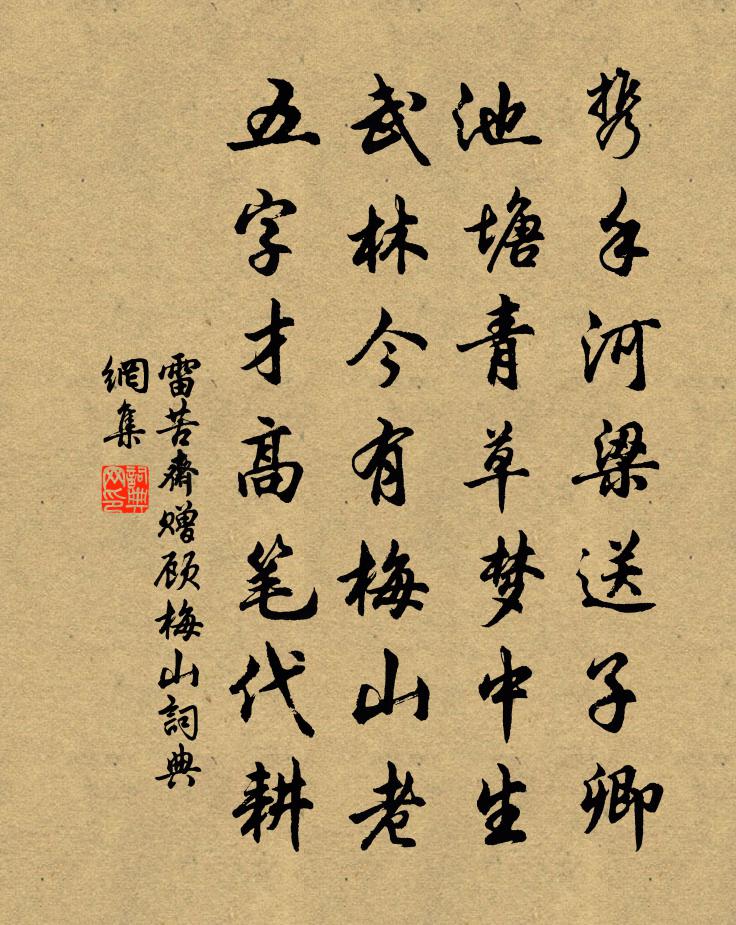 携手河梁送子卿
池塘青草梦中生
武林今有梅山老
五字才高笔代耕
雷苦斋赠顾梅山詞典
網集
詞典
网印